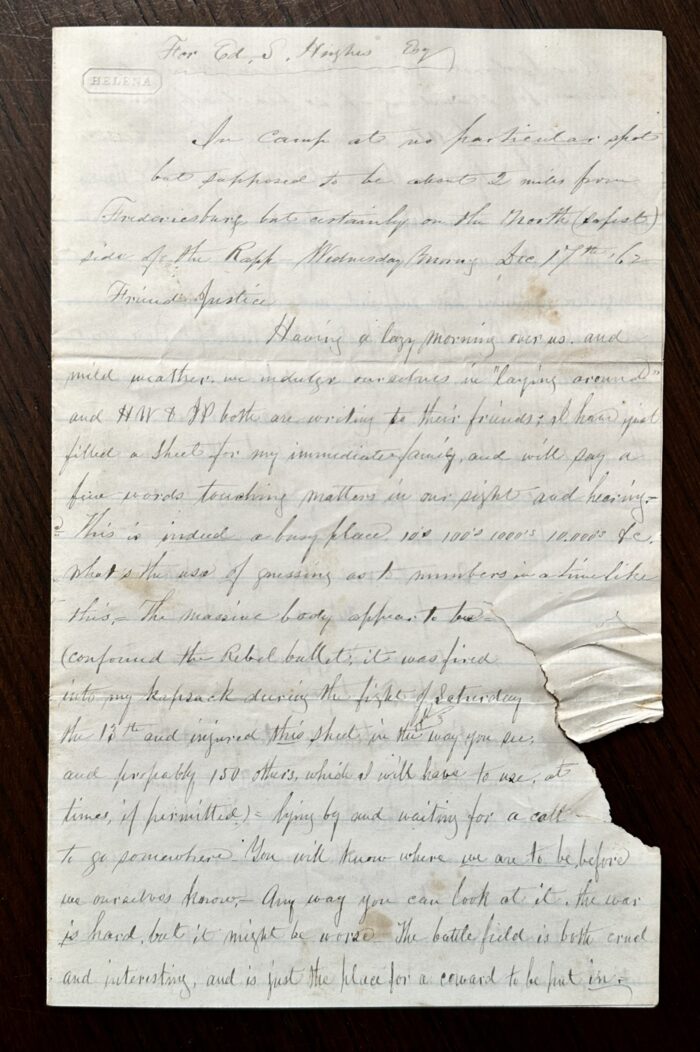 For Ed. S. Hughes Esq
HELENA
In camp at no particular spot
but supposed to be about 2 miles from
Fredericsburg but certainly on the North (safest)
side of the Rapp Wednesday Morng Dec 17th '62
Friend Justice
Having a lazy morning over us. and
mild weather. we indulge ourselves in "laying around"
and HW & JP both are writing to their friends; I have just
filled a sheet for my immediate family, and will say a
few words touching matters in our sight and hearing.-
This is indeed a busy place 10's 100's 1000's 10.000's &c.
what's the use of guessing as to numbers in a time like
this.- The massive body appear to be-
(confound the Rebel bullet, it was fired
into my kapsack during the fight of Saturday
the 13th and injured this sheet in the way you see;
and propably 150 others, which I will have to use, at
times, if permitted)- lying by and waiting for a call-
to go somewhere You will know where we are to be, before
we ourselves know.- Any way you can look at it, the war
is hard, but it might be worse The battle field is both cruel
and interesting, and is just the place for a coward to be put in.-